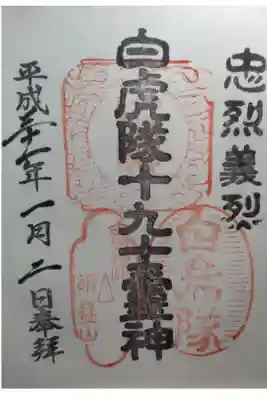 忠烈義烈
白虎隊十九士靈神
平成年一月二日奉拝
白虎隊
飯盛山